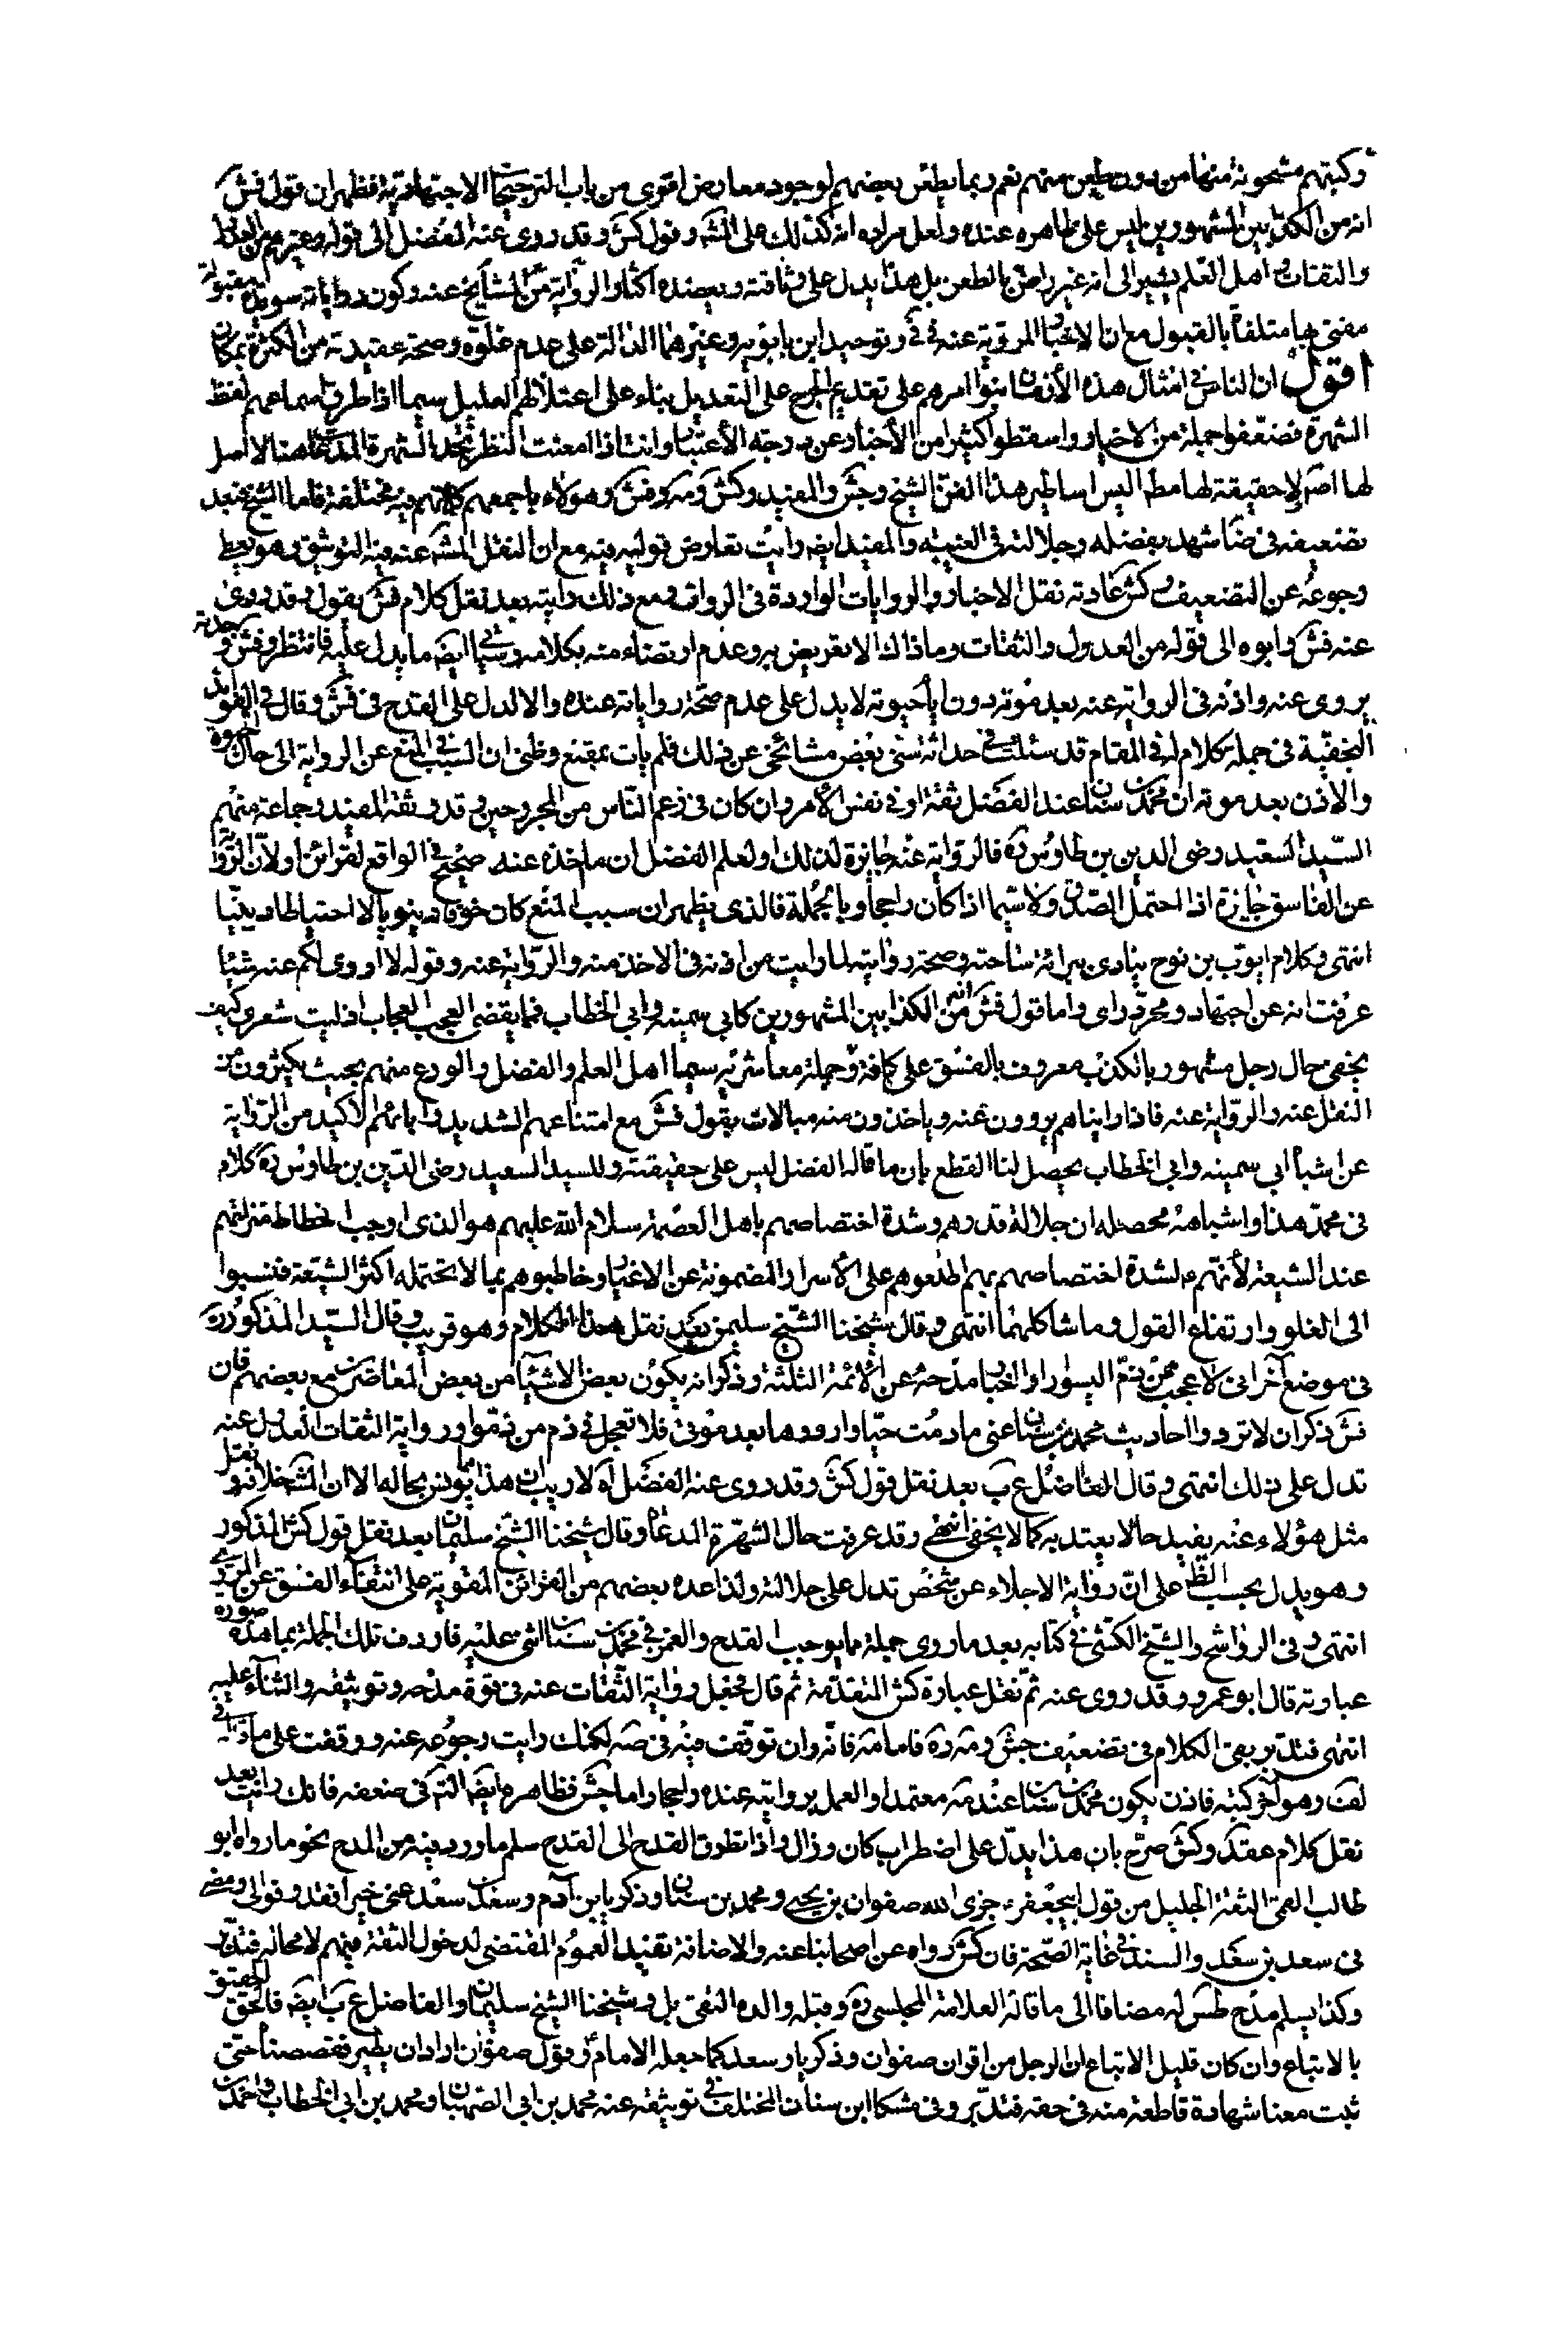 وكتبهم مشحونة منها من دون طعن منهم نعم ربما يطعن بعضهم لوجود معارض اقوى من باب الترجيحات الاجتهادية فظهر ان قول فش
انه من الكذابين المشهورين ليس على ظاهره عنده ولعل مراده انه كذلك على المشه وقول كش وقد روى عنه الفضل الى قوله وغيرهم من العدول
والثقات من اهل العلم يشير الى انه غير راض بالطعن بل هذا يدل على وثاقته ويعضده اكثار الرواية من المشايخ عنه وكون رواياته مقبولة
مفتى بها متلقاة بالقبول مع ان الاخبار المروية عنه في في وتوحيد ابن بابويه وغيرهما الدالة على عدم غلوه وصحة عقيدته من الكثرة بمكان
اقول ان الناس في امثال هذه الأزمان بنوا امرهم على تقديم الجرح على التعديل بناء على اعتلالهم العليل سيما اذا طرق اسماعهم لفظ
الشهرة فضعفوا جملة من الاخيار واسقطوا كثيرا من الأخبار عن درجة الأعتبار وانت اذا امعنت النظر تجد الشهرة المدعاة هنا لا اصل
لها اصلا ولا حقيقة لها مطلقا اليس اساطير هذا الفن الشيخ وجش والمفيد وكش ومه وفش وهؤلاء باجمعهم كلماتهم فيه مختلفة فاما الشيخ فبعد
تضعيفه في ضا شهد بفضله وجلالته في الغيبة والمفيد ايضه رايت تعارض قوليه فيه مع ان النقل المشه عنه فيه التوثيق وهو يعطي
رجوعه عن التضعيف وكش عادته نقل الاخبار والروايات الواردة في الرواة ومع ذلك رايته بعد نقل كلام فش يقول وقد روى
عنه فش وابوه الى قوله من العدول والثقات وما ذاك الا تعريض به وعدم ارتضاء منه بكلامه وسياتي ايضه ما يدل عليه فانتظر وفش وجدته
يروى عنه واذنه في الرواية عنه بعد موته دون ايام حيوته لا يدل على عدم صحة رواياته عنده والا لدل على القدح في فش وقال في الفوائد
النجفية في جملة كلام له في المقام قد سئلت في حداثة سني بعض مشائخي عن ذلك فلم يات بمقنع وظني ان السبب في المنع عن الرواية الى حال حيوة
والاذن بعد موته ان محمد بن سنان عند الفضل ثقة او في نفس الأمر وان كان في زعم الناس من المجروحين وقد وثقه المفيد وجماعة منهم
السيد السعيد رضى الدين بن طاوس ره فالرواية عنه جايزة لذلك او لعلم الفضل ان ما خذه عنه صحيح في الواقع لقرائن او لأن الرواية
عن الفاسق جايزة اذا احتمل الصدق ولا سيما اذا كان راجحا وبالجملة فالذي يظهر ان سبب المنع كان خوفا دينويا لا احتياطا دينيا
انتهى وكلام ايوب بن نوح ينادى ببرائة ساحته وصحة روايته لما رايت من اذنه في الاخذ منه والرواية عنه وقوله لا اروى لكم عنه شيئا
عرفت انه عن اجتهاد ومجرد راى واما قول فش انه من الكذابين المشهورين كابي سمينه وابي الخطاب فما يقضى العجب العجاب اذ ليت شعرى كيف
يخفى حال رجل مشهور بالكذب معروف بالفسق على كافة وجملة معاشريه سيما اهل العلم والفضل والورع منهم بحيث يكثرون من
النقل عنه والرواية عنه فاذا رايناهم يروون عنه وياخذون منه مبالات بقول فش مع امتناعهم الشديد وابائهم الاكيد من الرواية
عن اشباه ابي سمينه وابي الخطاب يحصل لنا القطع بان ما قاله الفضل ليس على حقيقته وللسيد السعيد رضى الدين بن طاوس ره كلام
في محمد هذا واشباهه محصله ان جلالة قدرهم وشدة اختصاصهم باهل العصمة سلام الله عليهم هو الذي اوجب انحطاط منزلتهم
عند الشيعة لأنهم ع لشدة اختصاصهم بهم اطلعوهم على الأسرار المضمونة عن الاغيار وخاطبوهم بما لا يحتمله اكثر الشيعة فنسبوا
الى الغلو وارتفاع القول وما شاكلهما انتهى وقال شيخنا الشيخ سليمن بعد نقل هذا الكلام وهو قريب وقال السيد المذكور ره
في موضع آخر اني لأعجب ممن يذم اليسور او الاخبار مدحه عن الأئمة الثلثة وذكر انه يكون بعض الاشياء من بعض المعاصرين مع بعضهم فان
فش ذكر ان لا تردوا احاديث محمد بن سنان عنى ما دمت حيا وارووها بعد موتى فلا تعجل في ذم من ذموا ورواية الثقات العدول عنه
تدل على ذلك انتهى وقال الفاضل ع ب بعد نقل قول كش وقد روى عنه الفضل آه لا ريب ان هذا مما يؤنس بحاله الا ان المشه خلافه ونقل
مثل هؤلاء عنه يفيد حالا يعتد به كما لا يخفى انتهى وقد عرفت حال الشهرة المدعاة وقال شيخنا الشيخ سليمان بعد نقل قول كش المذكور
وهو يدل بحسب الظ على ان رواية الاجلاء عن شخص تدل على جلالته ولذا عده بعضهم من القرائن المقوية على انتفاء الفسق عن المروي
انتهى وفي الرواشح والشيخ الكشي في كتابه بعد ما روى جملة ما يوجب القدح والغمز في محمد بن سنان اثنى عليه فاردف تلك الجملة بما هذه صورة
عبارته قال ابو عمرو وقد روى عنه ثم نقل عبارة كش المتقدمة ثم قال فجعل رواية الثقات عنه في قوة مدحه وتوثيقه والثناء عليه
انتهى فتدبر بقى الكلام في تضعيف جش ومه ره فاما مه فانه وان توقف فيه في صه لكنك رايت رجوعه عنه ووقفت على ما قاله في
لف وهو آخر كتبه فاذن يكون محمد بن سنان عند مه معتمدا والعمل بروايته عنده راجحا واما جش فظاهره ايضه التردد في ضعفه فانك رايت بعد
نقل كلام عقد وكش صرح بان هذا يدل على اضطراب كان وزال واذا تطرق القدح الى القدح سلم ما ورد فيه من المدح نحو ما رواه ابو
طالب القمى الثقة الجليل من قول ابيجعفر ع جزى الله صفوان بن يحيى ومحمد بن سنان وذكريا بن آدم وسعد بن سعد عنى خيرا فقد وفوا لي ومضى
في سعد بن سعد والسند في غاية الصحة فان كش رواه عن اصحابنا عنه والاضافة تفيد العموم المقتضى لدخول الثقة فيهم لا محالة فتدبر
وكذا يسلم مدح طس له مضافا الى ما قاله العلامة المجلسى ره وقبله والده التقى بل وشيخنا الشيخ سليمان والفاضل ع ب ايضه فالحق الحقيق
بالاتباع وان كان قليل الاتباع ان الرجل من اقران صفوان وذكريا وسعد كما جعله الامام ع وقول صفوان اراد ان يطير فقصصناه حتى
ثبت معنا شهادة قاطعة منه في حقه فتدبر وفي مشكا ابن سنان المختلف في توثيقه عنه محمد بن ابي الصهبان ومحمد بن ابي الخطاب واحمد بن